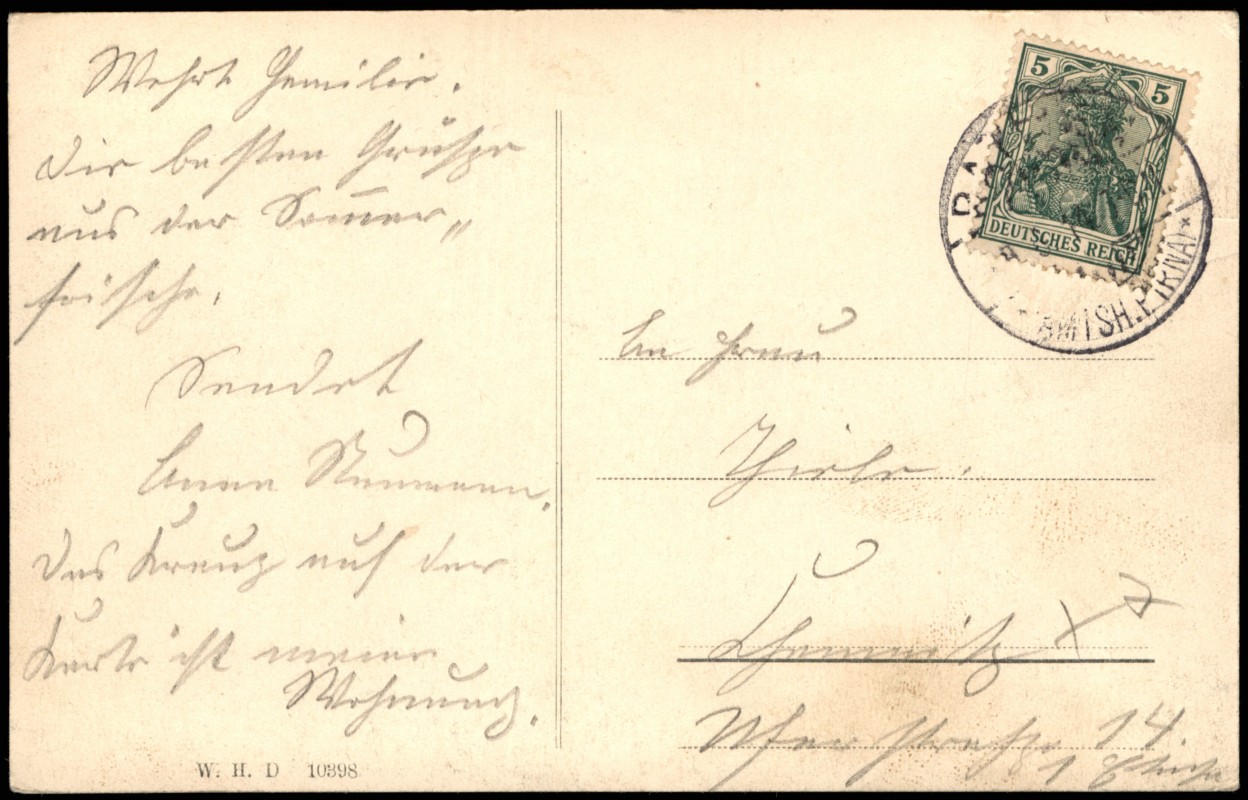 Wehrt Familie.
Die besten Grüße
aus der Som̅er„
frische.
Sendet
Anna Neumann.
Das Kreuz auf der
Karte ist meine
Wohnung.
W. H. D 10398
5 5
DEUTSCHES REICH
(AMTSH. PIRNA)
An Frau
Thiele.
Chemnitz
Uferstraße 14.
1